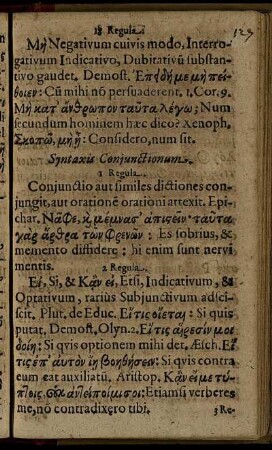 18 Regula.
129
Μὴ Negativum cuivis modo, Interro-
gativum Indicativo, Dubitativũ substan-
tivo gaudet. Demost. Ἐπειδή με μὴ πεί-
θοιεν: Cũ mihi nõ persuaderent. 1. Cor. 9.
Μὴ κατ' ἄνθρωπον ταῦτα λέγω; Num
secundum hominem hæc dico? Xenoph.
Σκοπῶ, μὴ ᾖ: Considero, num sit.
Syntaxis Conjunctionum.
1 Regula.
Conjunctio aut similes dictiones con-
jungit, aut orationẽ orationi attexit. Epi-
char. Νᾶφε, καὶ μέμνασ' ἀπιςεῖν· ταῦτα
γὰρ ἄρθρα των φρενῶν: Es sobrius, &
memento diffidere; hi enim sunt nervi
mentis.
2 Regula.
Εἰ, Si, & Κἂν εἰ, Etsi, Indicativum, &
Optativum, rariùs Subjunctivum adsci-
scit. Plut. de Educ. Εἴ τις οἴεται: Si quis
putat. Demost. Olyn. 2. Εἴ τις αἵρεσίν μοι
δοίη: Si qvis optionem mihi det. Æsch. Εἴ
τις ἐπ' αυτὸν ἴῃ βοηθήσειν: Si qvis contra
eum eat auxiliatũ. Aristop. Κἂν εἴ με τύ-
πτοις οὐκ ἀντείποιμί σοι: Etiamsi verberes
me, nõ contradixero tibi.
3 Re-